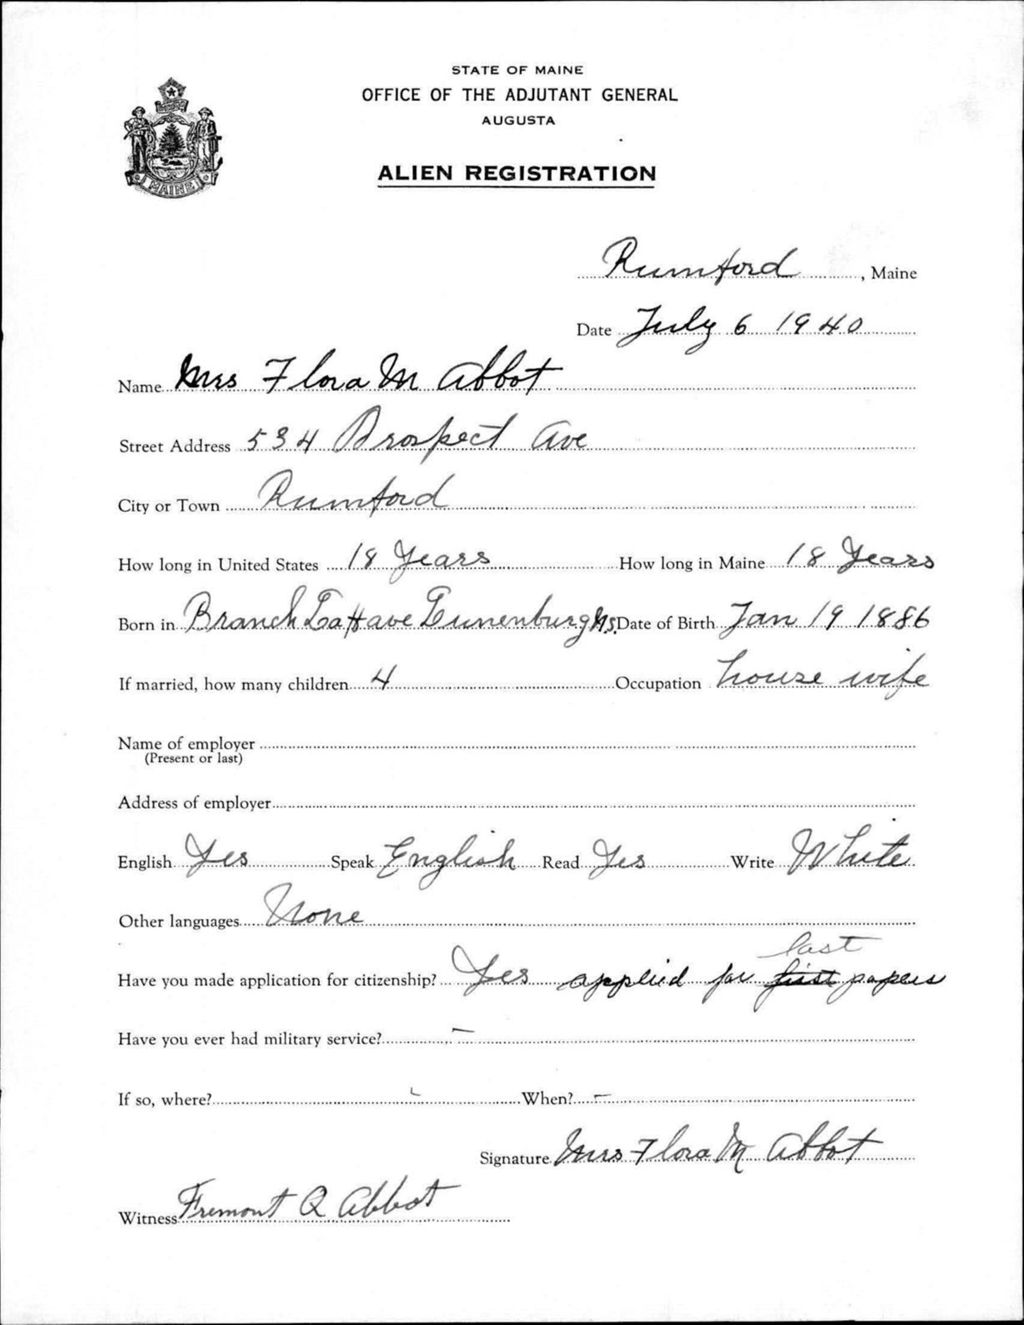 STATE OF MAINE
OFFICE OF THE ADJUTANT GENERAL
AUGUSTA
ALIEN REGISTRATION
MAINE
Rumford, Maine
Date July 6 1940
Name Mrs Flora M Abbot
Street Address 534 Prospect Ave
City or Town Rumford
How long in United States 18 Years How long in Maine 18 Years
Born in Branch LaHave Lunenburg N.S. Date of Birth Jan 19 1886
If married, how many children 4 Occupation house wife
Name of employer
(Present or last)
Address of employer
English Yes Speak English Read Yes Write White
Other languages None
last
Have you made application for citizenship? Yes applied for first papers
Have you ever had military service? –
If so, where? - When? –
Signature Mrs Flora M Abbot
Witness Fremont Q Abbot